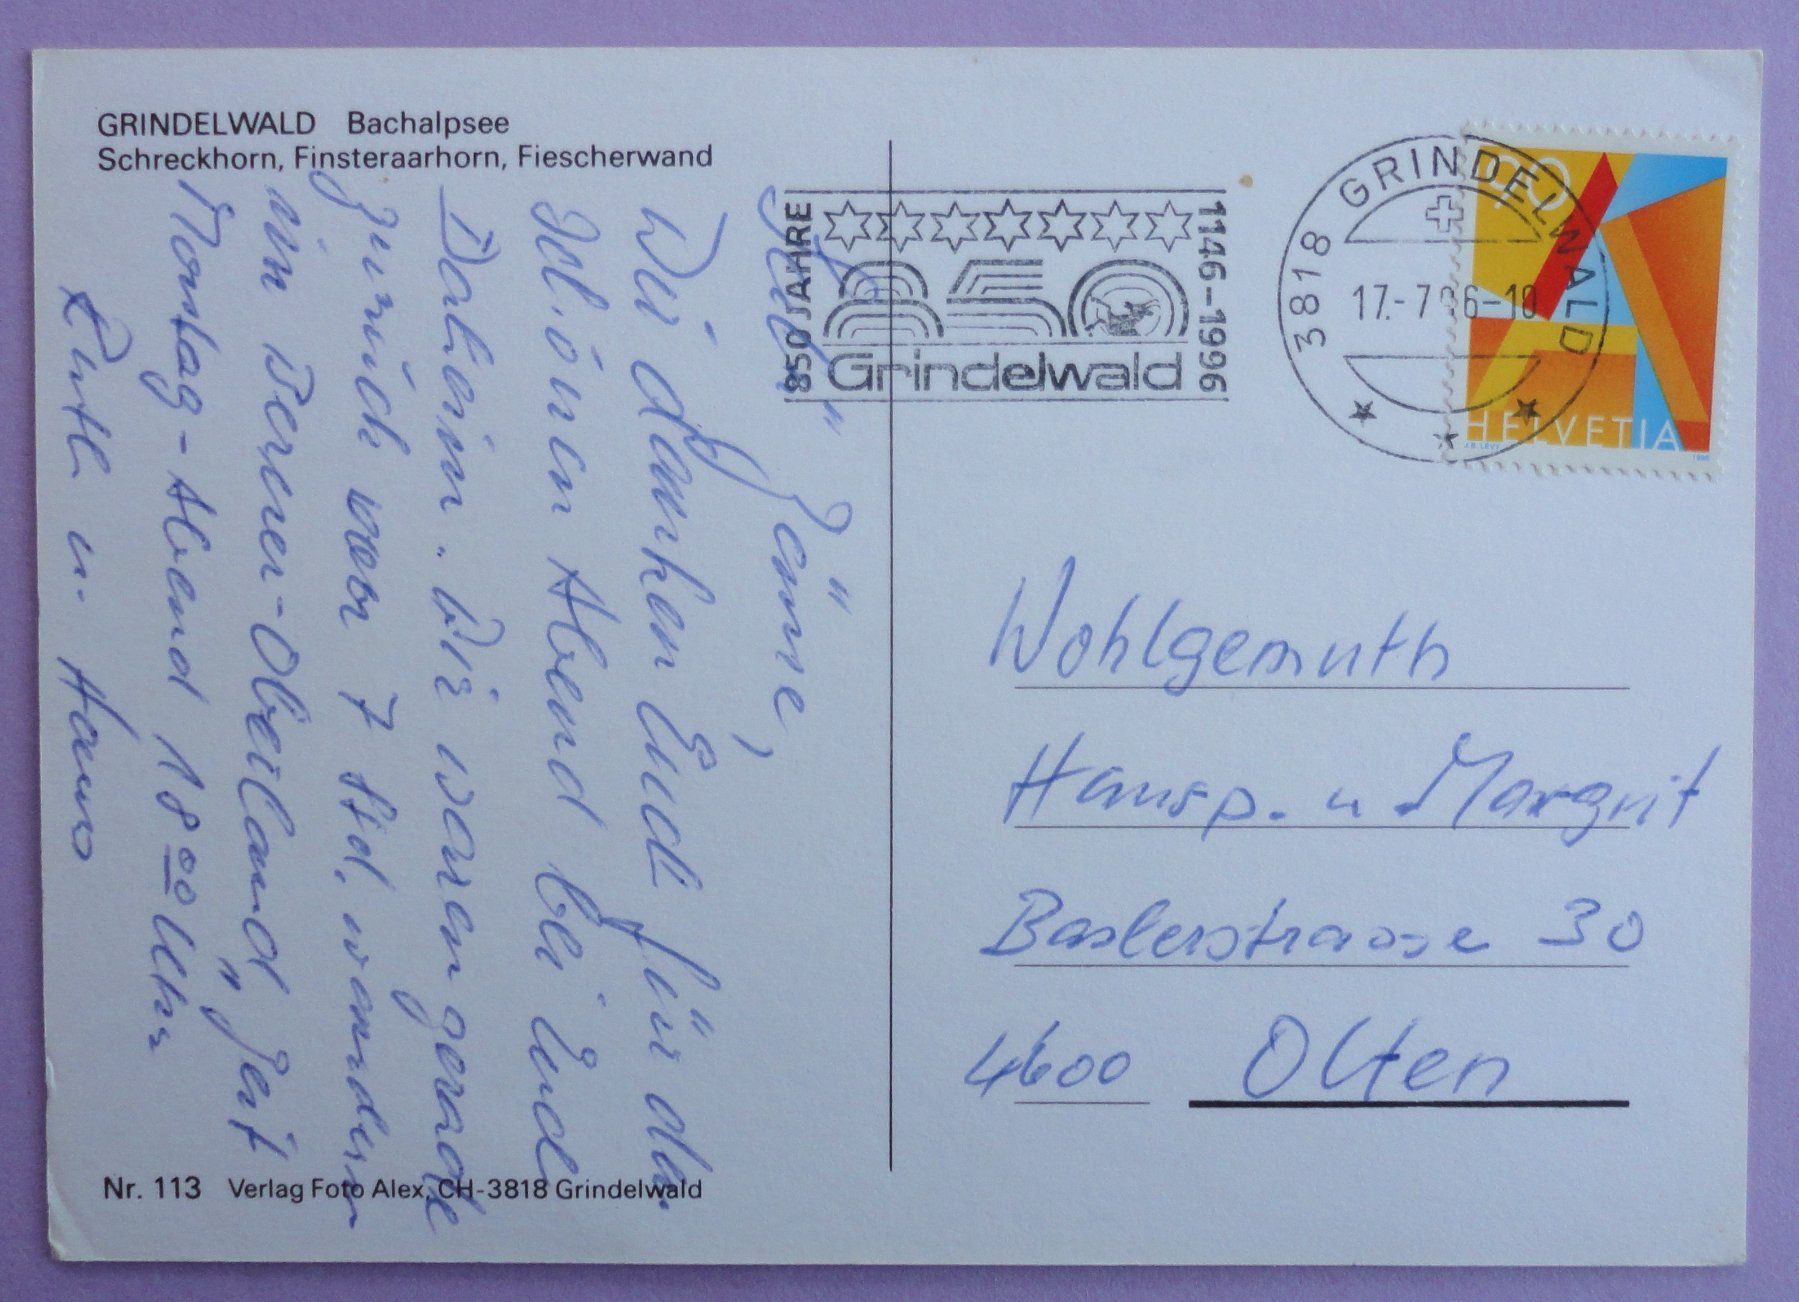 GRINDELWALD Bachalpsee
Schreckhorn, Finsteraarhorn, Fiescherwand
850 JAHRE
1146-1996
850
Grindelwald
3818 GRINDELWALD
17.-7 96-10
90
HELVETIA
J.B. LEVY
1995
Wir danken Euch für den
schönen Abend bei Euch
Daheim. Wir waren gerade
zurück von 7 Std. wandern
im Berner-Oberland, Zeit
Montag-Abend 18 00 Uhr
Ruth u. Hans
Wohlgemuth
Hansp. u Margrit
Baslerstrasse 30
4600 Olten
Nr. 113 Verlag Foto Alex, CH-3818 Grindelwald